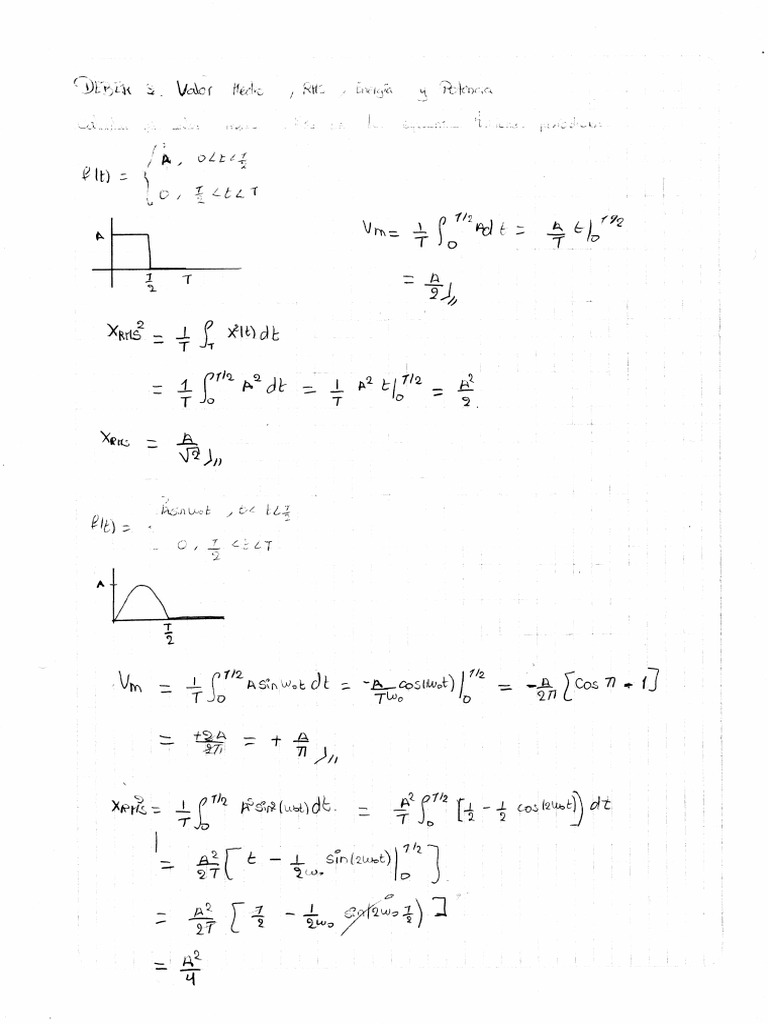 DEBER 3. Valor Medio, RMS, Energía y Potencia
f(t) = { A, 0<t<T/2
0, T/2<t<T
A
T/2 T
Vm = 1/T ∫₀^T/2 A dt = A/T t|₀^T/2
= A/2 //
X_RMS² = 1/T ∫_T x²(t) dt
= 1/T ∫₀^T/2 A² dt = 1/T A² t|₀^T/2 = A²/2.
X_RMS = A/√2 //
f(t) = Asinω₀t, 0< t<T/2
0, T/2 <t<T
A
T/2
Vm = 1/T ∫₀^T/2 A sin ω₀t dt = -A/Tω₀ cos(ω₀t)|₀^T/2 = -A/2π [cos π - 1]
= +2A/2π = + A/π //
X_RMS² = 1/T ∫₀^T/2 A² sin²(ω₀t) dt. = A²/T ∫₀^T/2 [1/2 - 1/2 cos(2ω₀t)] dt
= A²/2T [ t - 1/2ω₀ sin(2ω₀t)|₀^T/2 ]
= A²/2T [ T/2 - 1/2ω₀ (2ω₀ T/2) ] 0
= A²/4